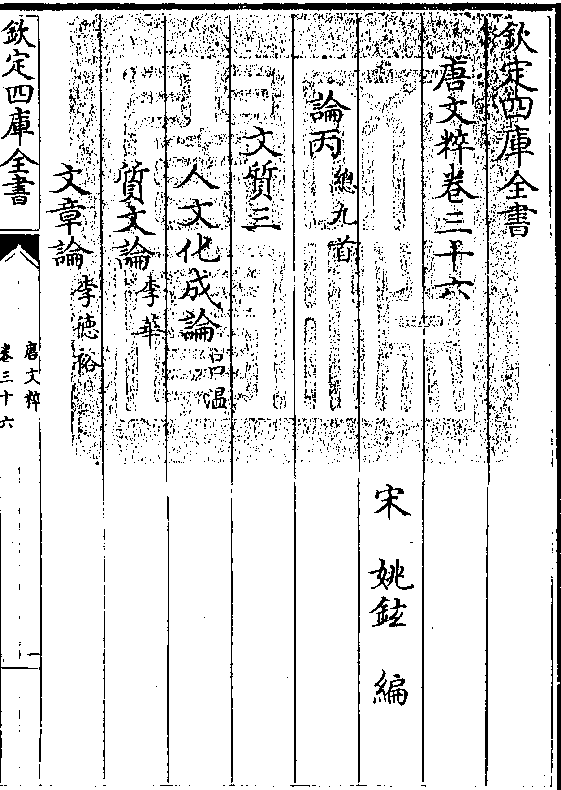 欽定四庫全書
唐文粹卷三十六
宋 姚鉉 編
論丙 總九首
文質三
人文化成論 呂溫
質文論 李華
文章論 李徳裕
欽定四庫全書
唐文粹
卷三十六
一